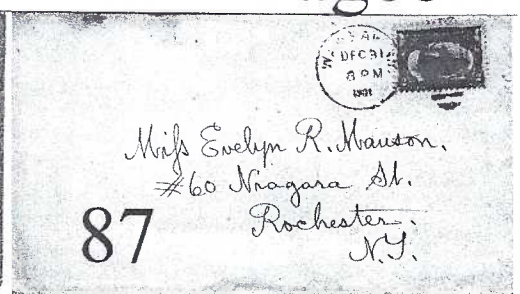 DEC 31
8 PM
Miss Evelyn R. Manson.
#60 Niagara St.
Rochester.
N.Y.
87